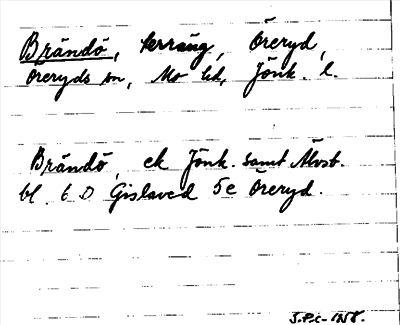 Brändö, terräng, Öreryd,
Öreryds sn, Mo hd, Jönk. l.
Brändö, ek Jönk. samt Älvsb.
bl. 6 D Gislaved 5e Öreryd.
1958.